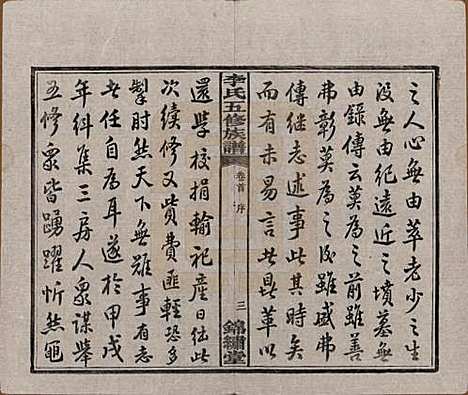 之人心無由萃老少之生
沒無由紀遠近之墳墓無
由錄傳云莫為之前雖善
弗彰莫為之後雖盛弗
傳繼志述事此其時矣
而有未易言者此鼎革以
李氏五修族譜
卷首 序
三
錦繡堂
還學校捐輸祀產日往此
次續修又此費匪輕恐多
掣肘然天下無難事有志
者任自為耳遂於甲戌
年糾集三房人眾謀舉
五修眾皆踴躍忻然